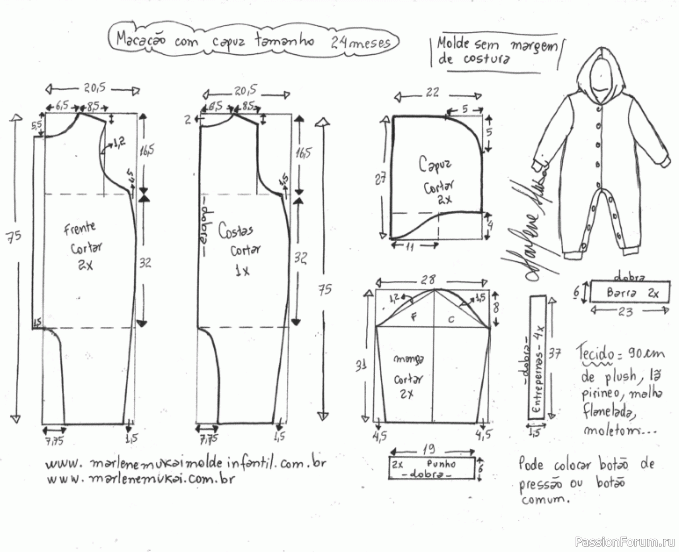 Macacão com capuz tamanho 24 meses
Molde sem margem
de costura
20,5
6,5
8,5
5,5
1,2
16,5
4,5
75
Frente
cortar
2x
32
1,5
7,75
1,5
20,5
6,5
8,5
2
16,5
4,5
-dobra-
Costas
cortar
1x
32
75
7,75
1,5
22
5
5
27
Capuz
cortar
2x
11
4
28
1,2
1,5
8
F
C
31
manga
cortar
2x
4,5
4,5
19
2x Punho
-dobra-
6
-dobra-
Entrepernas - 4x
37
1,5
dobra
6
Barra 2x
23
Marlene Mukai
Tecido = 90cm
de plush, lã
pirineo, malha
flanelada,
moletom...
Pode colocar botão de
pressão ou botão
comum.
www.marlenemukaimoldeinfantil.com.br
www.marlenemukai.com.br
PassionForum.ru